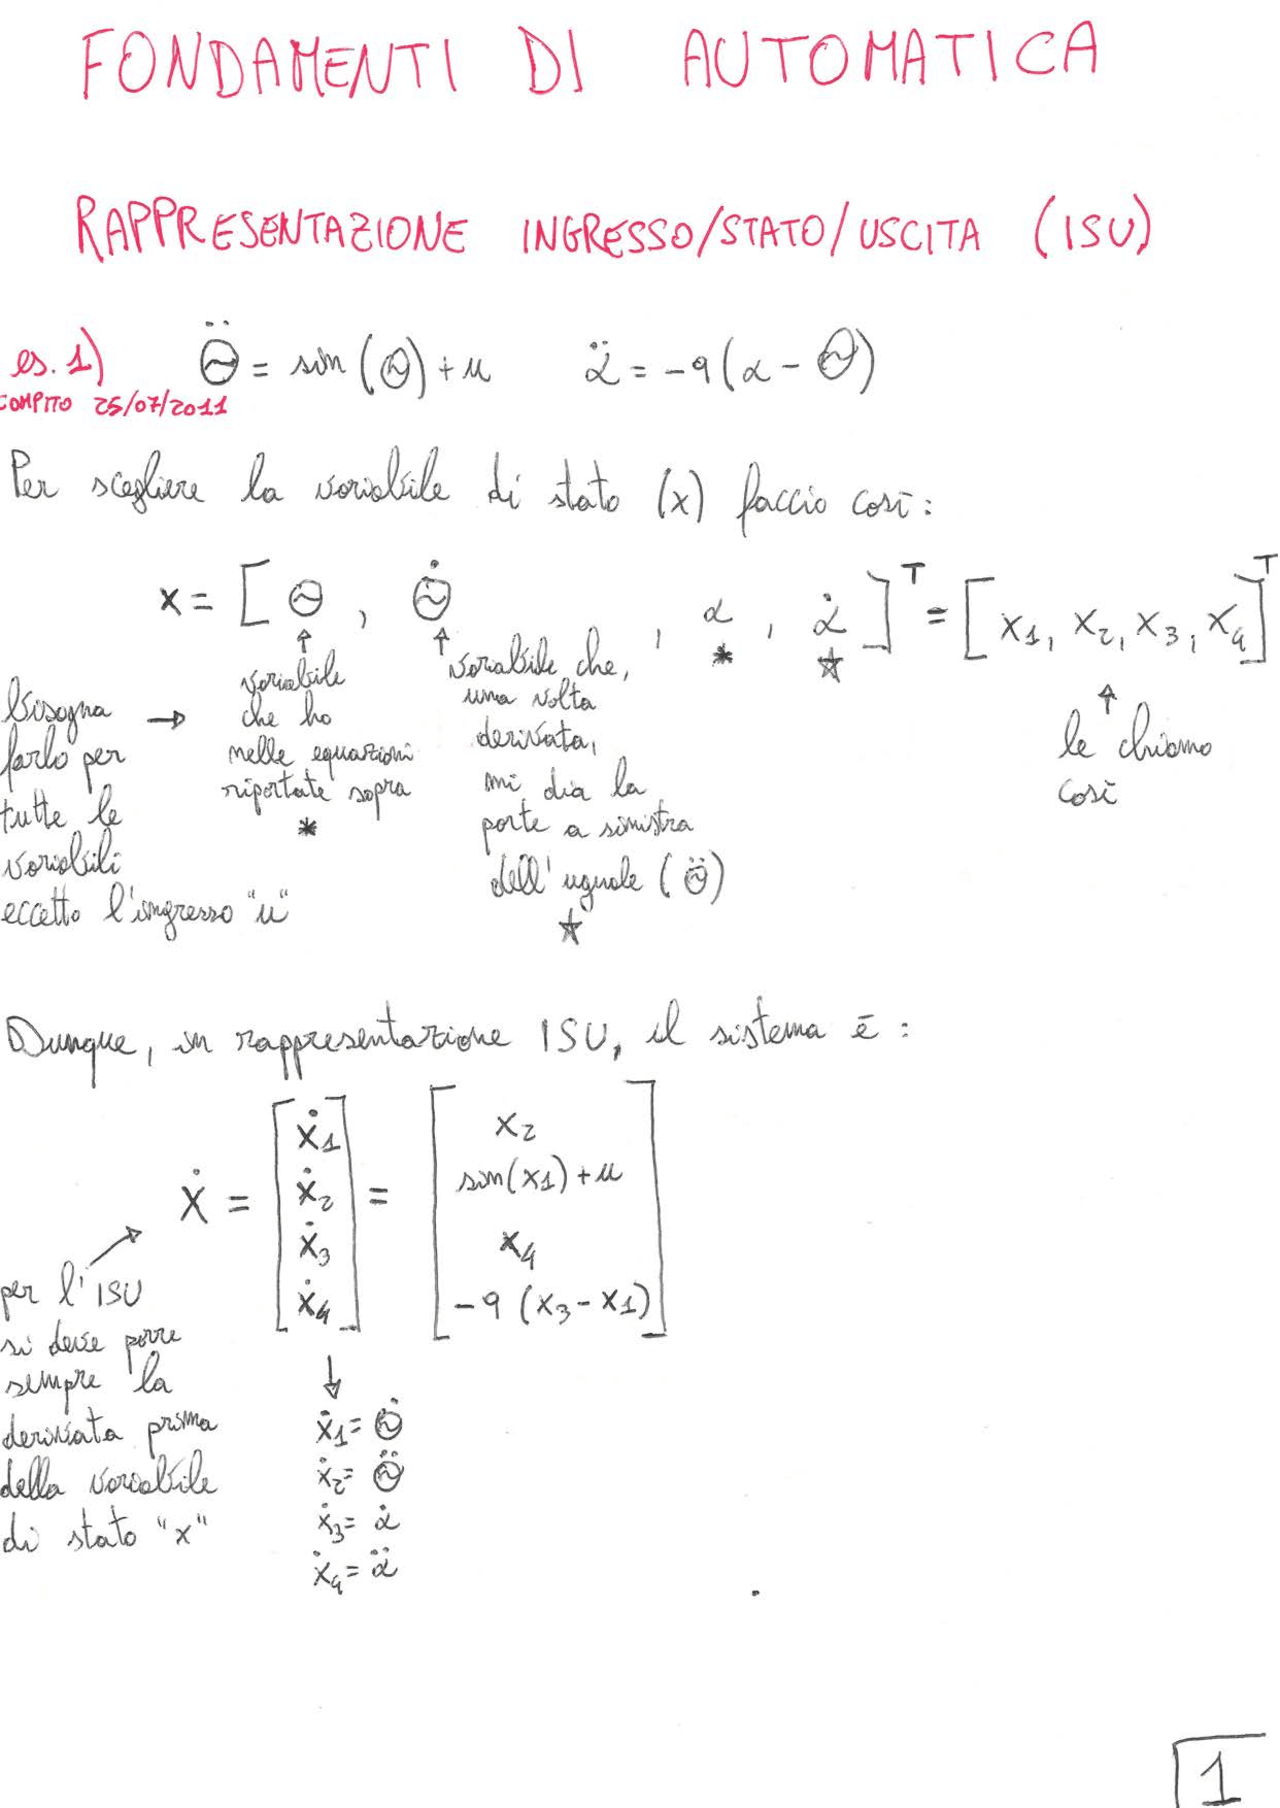 FONDAMENTI DI AUTOMATICA
RAPPRESENTAZIONE INGRESSO/STATO/USCITA (ISU)
es. 1) Θ̈ = sin(Θ) + u α̈ = -9(α - Θ)
COMPITO 25/07/2011
Per scegliere la variabile di stato (x) faccio così:
x = [ Θ , Θ̇ , α , α̇ ]ᵀ = [x1, x2, x3, x4]ᵀ
* ☆
bisogna → farlo per
tutte le
variabili
eccetto l'ingresso "u"
variabile
che ho
nelle equazioni
riportate sopra
*
variabile che,
una volta
derivata,
mi dia la
parte a sinistra
dell'uguale (Θ̈)
☆
le chiamo
così
Dunque, in rappresentazione ISU, il sistema è:
ẋ = [ẋ1 ẋ2 ẋ3 ẋ4] = [x2
sin(x1) + u
x4
-9 (x3 - x1)]
per l'ISU
si deve porre
sempre la
derivata prima
della variabile
di stato "x"
↓
ẋ1 = Θ̇
ẋ2 = Θ̈
ẋ3 = α̇
ẋ4 = α̈
1